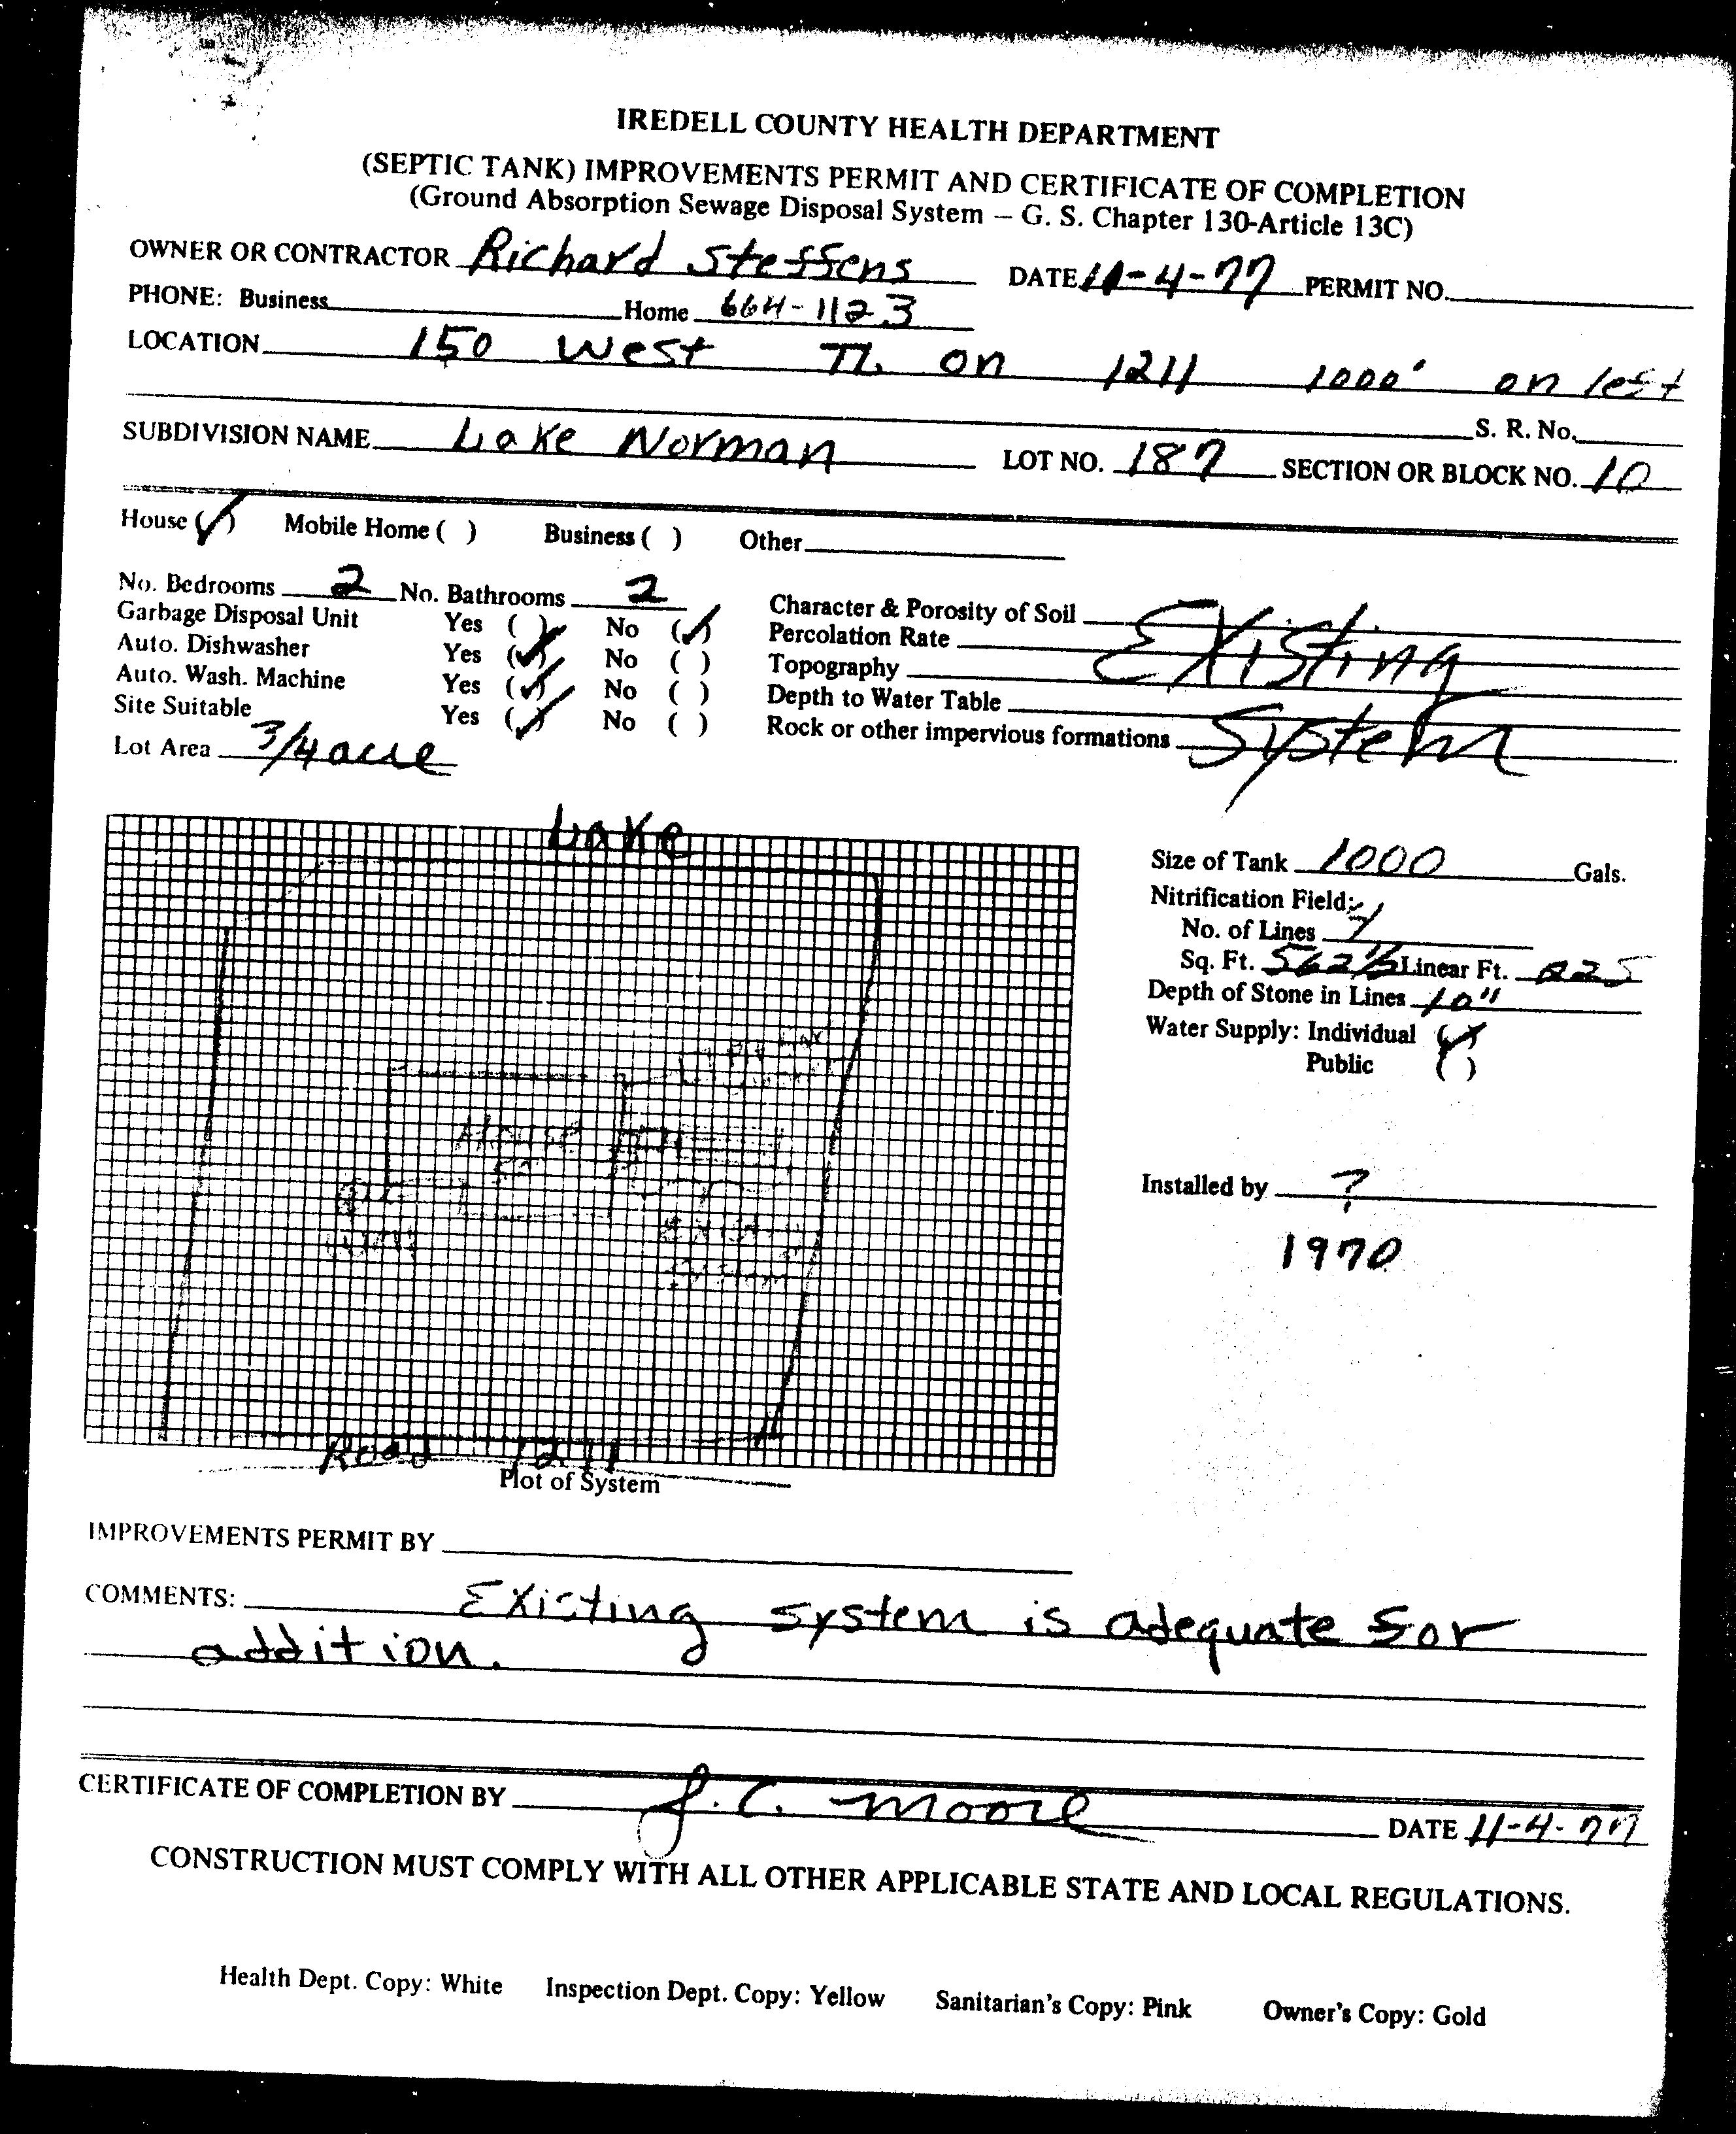 IREDELL COUNTY HEALTH DEPARTMENT
(SEPTIC TANK) IMPROVEMENTS PERMIT AND CERTIFICATE OF COMPLETION
(Ground Absorption Sewage Disposal System – G. S. Chapter 130-Article 13C)
OWNER OR CONTRACTOR Richard Steffens DATE 11-4-77 PERMIT NO.
PHONE: Business Home 664-1123
LOCATION 150 West TL. on 1211 1000' on left
S. R. No.
SUBDIVISION NAME Lake Norman LOT NO. 187 SECTION OR BLOCK NO. 10
House (✓) Mobile Home ( ) Business ( ) Other
No. Bedrooms 2 No. Bathrooms 2
Garbage Disposal Unit Yes ( ) No (✓)
Auto. Dishwasher Yes (✓) No ( )
Auto. Wash. Machine Yes (✓) No ( )
Site Suitable Yes (✓) No ( )
Lot Area 3/4 acre
Character & Porosity of Soil
Percolation Rate
Topography
Depth to Water Table
Rock or other impervious formations
Existing
System
Lake
House
Road 1211
Plot of System
Size of Tank 1000 Gals.
Nitrification Field:
No. of Lines
Sq. Ft. 562 1/2 Linear Ft. 225
Depth of Stone in Lines 10"
Water Supply: Individual (✓)
Public ( )
Installed by ?
1970
IMPROVEMENTS PERMIT BY
COMMENTS: Existing system is adequate for
addition.
CERTIFICATE OF COMPLETION BY J. C. Moore DATE 11-4-77
CONSTRUCTION MUST COMPLY WITH ALL OTHER APPLICABLE STATE AND LOCAL REGULATIONS.
Health Dept. Copy: White Inspection Dept. Copy: Yellow Sanitarian's Copy: Pink Owner's Copy: Gold